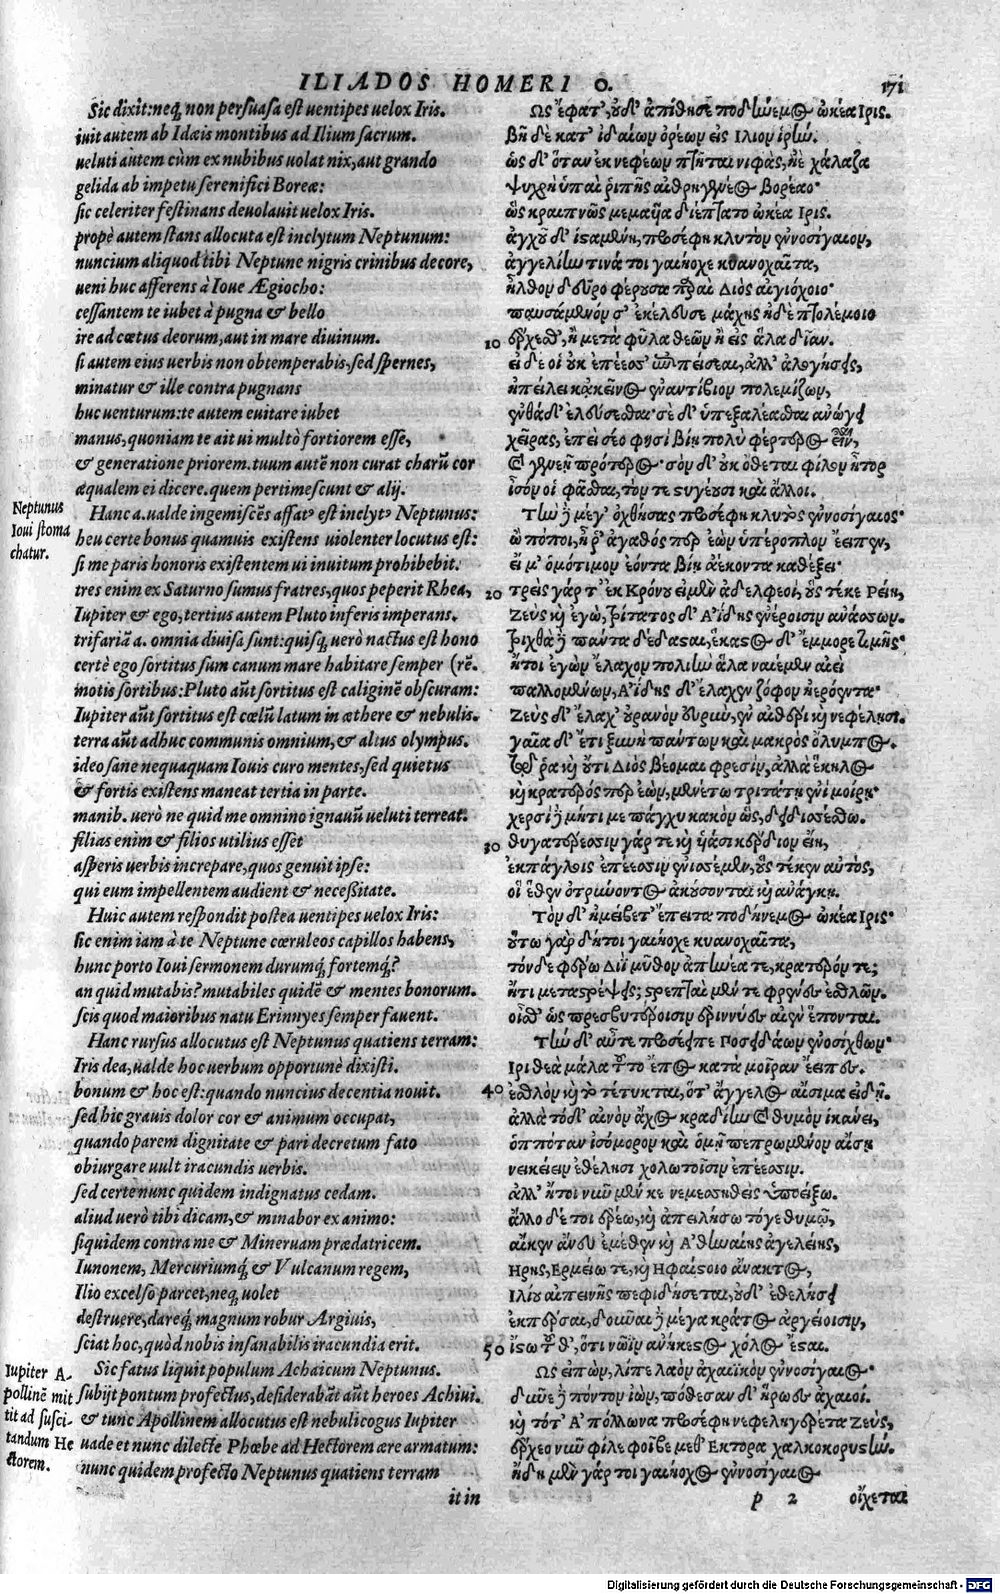 ILIADOS HOMERI O. 171
Sic dixit: neq; non persuasa est uentipes uelox Iris.
iuit autem ab Idæis montibus ad Ilium sacrum.
ueluti autem cùm ex nubibus uolat nix, aut grando
gelida ab impetu serenifici Boreæ:
sic celeriter festinans deuolauit uelox Iris.
propè autem stans allocuta est inclytum Neptunum:
nuncium aliquod tibi Neptune nigris crinibus decore,
ueni huc afferens à Ioue Ægiocho:
cessantem te iubet à pugna & bello
ire ad cœtus deorum, aut in mare diuinum.
si autem eius uerbis non obtemperabis, sed spernes,
minatur & ille contra pugnans
huc uenturum: te autem euitare iubet
manus, quoniam te ait ui multò fortiorem esse,
& generatione priorem. tuum autē non curat charū cor
æqualem ei dicere. quem pertimescunt & alij.
Neptunus
Ioui stoma
chatur.
Hanc a. ualde ingemiscēs affatꝰ est inclytꝰ Neptunus:
heu certe bonus quamuis existens uiolenter locutus est:
si me paris honoris existentem ui inuitum prohibebit.
tres enim ex Saturno sumus fratres, quos peperit Rhea,
Iupiter & ego, tertius autem Pluto inferis imperans.
trifariā a. omnia diuisa sunt: quisq; uerò nactus est hono
certè ego sortitus sum canum mare habitare semper (rē.
motis sortibus: Pluto aūt sortitus est caliginē obscuram:
Iupiter aūt sortitus est cœlū latum in æthere & nebulis.
terra aūt adhuc communis omnium, & altus olympus.
ideo sane nequaquam Iouis curo mentes, sed quietus
& fortis existens maneat tertia in parte.
manib. uerò ne quid me omnino ignauū ueluti terreat.
filias enim & filios utilius esset
asperis uerbis increpare, quos genuit ipse:
qui eum impellentem audient & necessitate.
Huic autem respondit postea uentipes uelox Iris:
sic enim iam à te Neptune cœruleos capillos habens,
hunc porto Ioui sermonem durumq; fortemq;?
an quid mutabis? mutabiles quidē & mentes bonorum.
scis quod maioribus natu Erinnyes semper fauent.
Hanc rursus allocutus est Neptunus quatiens terram:
Iris dea, ualde hoc uerbum opportunè dixisti.
bonum & hoc est: quando nuncius decentia nouit.
sed hic grauis dolor cor & animum occupat,
quando parem dignitate & pari decretum fato
obiurgare uult iracundis uerbis.
sed certe nunc quidem indignatus cedam.
aliud uerò tibi dicam, & minabor ex animo:
siquidem contra me & Mineruam prædatricem.
Iunonem, Mercuriumq; & Vulcanum regem,
Ilio excelso parcet, neq; uolet
destruere, dareq; magnum robur Argiuis,
sciat hoc, quòd nobis insanabilis iracundia erit.
Iupiter A-
pollinē mit
tit ad susci-
tandum He
ctorem.
Sic fatus liquit populum Achaicum Neptunus.
subijt pontum profectus, desiderabāt aūt heroes Achiui.
& tunc Apollinem allocutus est nebulicogus Iupiter
uade et nunc dilecte Phœbe ad Hectorem ære armatum:
nunc quidem profecto Neptunus quatiens terram
it in
Ως ἔφατ', οὐδ' ἀπίθησε ποδήνεμος ὠκέα Ιρις.
βῆ δὲ κατ' ἰδαίων ὀρέων εἰς Ιλιον ἱρήν.
ὡς δ' ὅταν ἐκ νεφέων πτῆται νιφὰς, ἠὲ χάλαζα
ψυχρὴ ὑπαὶ ῥιπῆς αἰθρηγενέος βορέαο·
ὣς κραιπνῶς μεμαῦα διέπτατο ὠκέα Ιρις.
ἀγχοῦ δ' ἱσταμένη, προσέφη κλυτὸν ἐννοσίγαιον,
ἀγγελίην τινά τοι γαιήοχε κυανοχαῖτα,
ἦλθον δεῦρο φέρουσα παραὶ Διὸς αἰγιόχοιο·
παυσάμενόν σ' ἐκέλευσε μάχης ἠδὲ πτολέμοιο
10 ἔρχεσθ', ἢ μετὰ φῦλα θεῶν ἢ εἰς ἅλα δῖαν.
εἰ δέ οἱ οὐκ ἐπέεσσ' ἐπιπείσεαι, ἀλλ' ἀλογήσεις,
ἠπείλει κἀκεῖνος ἐναντίβιον πολεμίζων,
ἐνθάδ' ἐλεύσεσθαι· σὲ δ' ὑπεξαλέασθαι ἀνώγει
χεῖρας, ἐπεὶ σέο φησὶ βίῃ πολὺ φέρτερος εἶναι,
καὶ γενεῇ πρότερος· σὸν δ' οὐκ ὄθεται φίλον ἦτορ
ἶσόν οἱ φᾶσθαι, τόν τε στυγέουσι καὶ ἄλλοι.
Τὴν δὲ μέγ' ὀχθήσας προσέφη κλυτὸς ἐννοσίγαιος·
ὢ πόποι, ἦ ῥ' ἀγαθός περ ἐὼν ὑπέροπλον ἔειπεν,
εἴ μ' ὁμότιμον ἐόντα βίῃ ἀέκοντα καθέξει·
20 τρεῖς γάρ τ' ἐκ Κρόνου εἰμὲν ἀδελφεοί, οὓς τέκε Ρείη,
Ζεὺς καὶ ἐγὼ, τρίτατος δ' Αἴδης ἐνέροισιν ἀνάσσων.
τριχθὰ δὲ πάντα δέδασται, ἕκαστος δ' ἔμμορε τιμῆς·
ἤτοι ἐγὼν ἔλαχον πολιὴν ἅλα ναιέμεν αἰεὶ
παλλομένων, Αἴδης δ' ἔλαχεν ζόφον ἠερόεντα·
Ζεὺς δ' ἔλαχ' οὐρανὸν εὐρὺν, ἐν αἰθέρι καὶ νεφέλῃσι.
γαῖα δ' ἔτι ξυνὴ πάντων καὶ μακρὸς ὄλυμπος.
τῷ ῥα καὶ οὔτι Διὸς βέομαι φρεσὶν, ἀλλὰ ἕκηλος
καὶ κρατερός περ ἐὼν, μενέτω τριτάτῃ ἐνὶ μοίρῃ·
χερσὶ δὲ μήτι με πάγχυ κακὸν ὣς, δειδισσέσθω.
30 θυγατέρεσσιν γάρ τε καὶ υἱάσι κέρδιον εἴη,
ἐκπάγλοις ἐπέεσσιν ἐνισσέμεν, οὓς τέκεν αὐτὸς,
οἵ ἕθεν ὀτρύνοντος ἀκούσονται καὶ ἀνάγκῃ.
Τὸν δ' ἠμείβετ' ἔπειτα ποδήνεμος ὠκέα Ιρις·
οὕτω γὰρ δή τοι γαιήοχε κυανοχαῖτα,
τόνδε φέρω Διῒ μῦθον ἀπηνέα τε, κρατερόν τε;
ἦ τι μεταστρέψεις; στρεπταὶ μέν τε φρένες ἐσθλῶν.
οἶσθ' ὡς πρεσβυτέροισιν ἐριννύες αἰὲν ἕπονται.
Τὴν δ' αὖτε προσέειπε Ποσειδάων ἐνοσίχθων·
Ιρι θεὰ μάλα τοῦτο ἔπος κατὰ μοῖραν ἔειπες.
40 ἐσθλὸν καὶ τὸ τέτυκται, ὅτ' ἄγγελος αἴσιμα εἰδῇ.
ἀλλὰ τόδ' αἰνὸν ἄχος κραδίην καὶ θυμὸν ἱκάνει,
ὁππόταν ἰσόμορον καὶ ὁμῇ πεπρωμένον αἴσῃ
νεικείειν ἐθέλῃσι χολωτοῖσιν ἐπέεσσιν.
ἀλλ' ἤτοι νῦν μέν κε νεμεσσηθεὶς ὑποείξω.
ἄλλο δέ τοι ἐρέω, καὶ ἀπειλήσω τόγε θυμῷ,
αἴκεν ἄνευ ἐμέθεν καὶ Ἀθηναίης ἀγελείης,
Ηρης, Ερμείω τε, καὶ Ηφαίστοιο ἄνακτος,
Ιλίου αἰπεινῆς πεφιδήσεται, οὐδ' ἐθελήσει
ἐκπέρσαι, δοῦναι δὲ μέγα κράτος ἀργείοισιν,
50 ἴστω τοῦθ', ὅτι νῶϊν ἀνήκεστος χόλος ἔσται.
Ως εἰπὼν, λίπε λαὸν ἀχαιϊκὸν ἐννοσίγαιος·
δῦνε δὲ πόντον ἰὼν, πόθεσαν δ' ἥρωες ἀχαιοί.
καὶ τότ' Ἀπόλλωνα προσέφη νεφεληγερέτα Ζεὺς,
ἔρχεο νῦν φίλε φοῖβε μεθ' Εκτορα χαλκοκορυστήν.
ἤδη μὲν γάρ τοι γαιήοχος ἐννοσίγαιος
p 2 οἴχεται
Digitalisierung gefördert durch die Deutsche Forschungsgemeinschaft - DFG